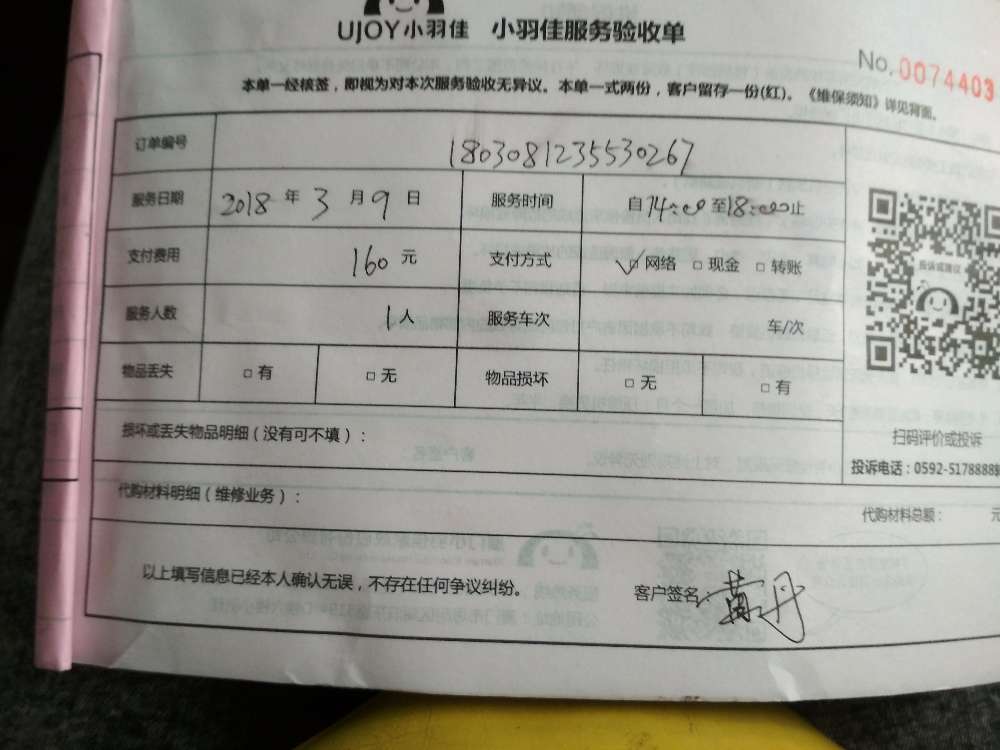 UJOY小羽佳 小羽佳服务验收单
No. 0074403
本单一经核签，即视为对本次服务验收无异议。本单一式两份，客户留存一份(红)。《维保须知》详见背面。
订单编号 1803081235530267
服务日期 2018 年 3 月 9 日 服务时间 自14:00至18:00止
支付费用 160 元 支付方式 ✓□ 网络 □ 现金 □ 转账
投诉或建议
服务人数 1人 服务车次 车/次
物品丢失 □ 有 □ 无 物品损坏 □ 无 □ 有
损坏或丢失物品明细（没有可不填）：
扫码评价或投诉
投诉电话：0592-5178888
代购材料明细（维修业务）：
代购材料总额： 元
以上填写信息已经本人确认无误，不存在任何争议纠纷。 客户签名：黄丹